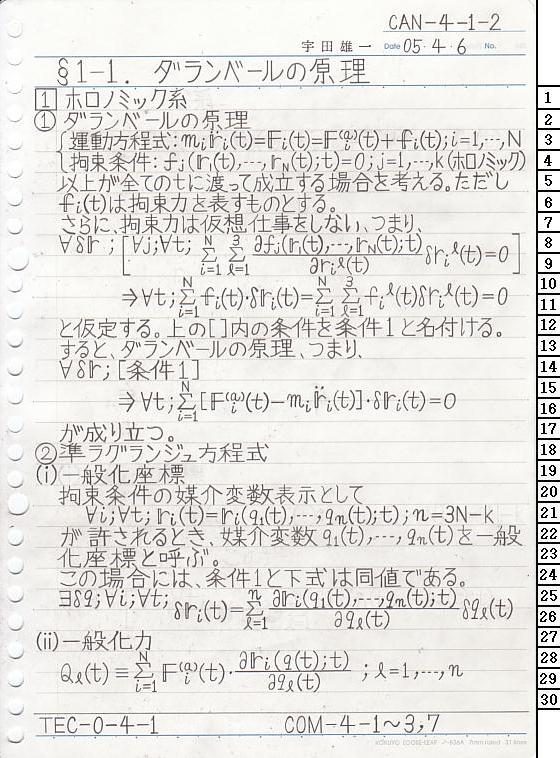 CAN-4-1-2
宇田雄一 Date 05・4・6 No.
§1-1. ダランベールの原理
1 ホロノミック系
① ダランベールの原理
{運動方程式:mᵢr̈ᵢ(t)=Fᵢ(t)=Fᵢ⁽ᵃ⁾(t)+fᵢ(t);i=1,…,N
拘束条件:fⱼ(r₁(t),…,r_N(t);t)=0;j=1,…,k(ホロノミック)
以上が全てのtに渡って成立する場合を考える。ただし
fᵢ(t)は拘束力を表すものとする。
さらに、拘束力は仮想仕事をしない、つまり、
∀δr;[∀j;∀t; Σ_{i=1}^{N} Σ_{ℓ=1}^{3} ∂fⱼ(r₁(t),…,r_N(t);t)/∂rᵢˡ(t) δrᵢˡ(t)=0]
⇒∀t; Σ_{i=1}^{N} fᵢ(t)・δrᵢ(t)=Σ_{i=1}^{N} Σ_{ℓ=1}^{3} fᵢˡ(t)δrᵢˡ(t)=0
と仮定する。上の[ ]内の条件を条件1と名付ける。
すると、ダランベールの原理、つまり、
∀δr;[条件1]
⇒∀t; Σ_{i=1}^{N} [Fᵢ⁽ᵃ⁾(t)-mᵢr̈ᵢ(t)]・δrᵢ(t)=0
が成り立つ。
② 準ラグランジュ方程式
(i) 一般化座標
拘束条件の媒介変数表示として
∀i;∀t;rᵢ(t)=rᵢ(q₁(t),…,qₙ(t);t);n=3N-k
が許されるとき、媒介変数q₁(t),…,qₙ(t)を一般
化座標と呼ぶ。
この場合には、条件1と下式は同値である。
∃δq;∀i;∀t; δrᵢ(t)=Σ_{ℓ=1}^{n} ∂rᵢ(q₁(t),…,qₙ(t);t)/∂q_ℓ(t) δq_ℓ(t)
(ii) 一般化力
Q_ℓ(t)≡Σ_{i=1}^{N} Fᵢ⁽ᵃ⁾(t)・∂rᵢ(q(t);t)/∂q_ℓ(t) ;ℓ=1,…,n
TEC-0-4-1 COM-4-1~3,7
KOKUYO LOOSE-LEAF ノ-836A 7mm ruled 31 lines
1
2
3
4
5
6
7
8
9
10
11
12
13
14
15
16
17
18
19
20
21
22
23
24
25
26
27
28
29
30